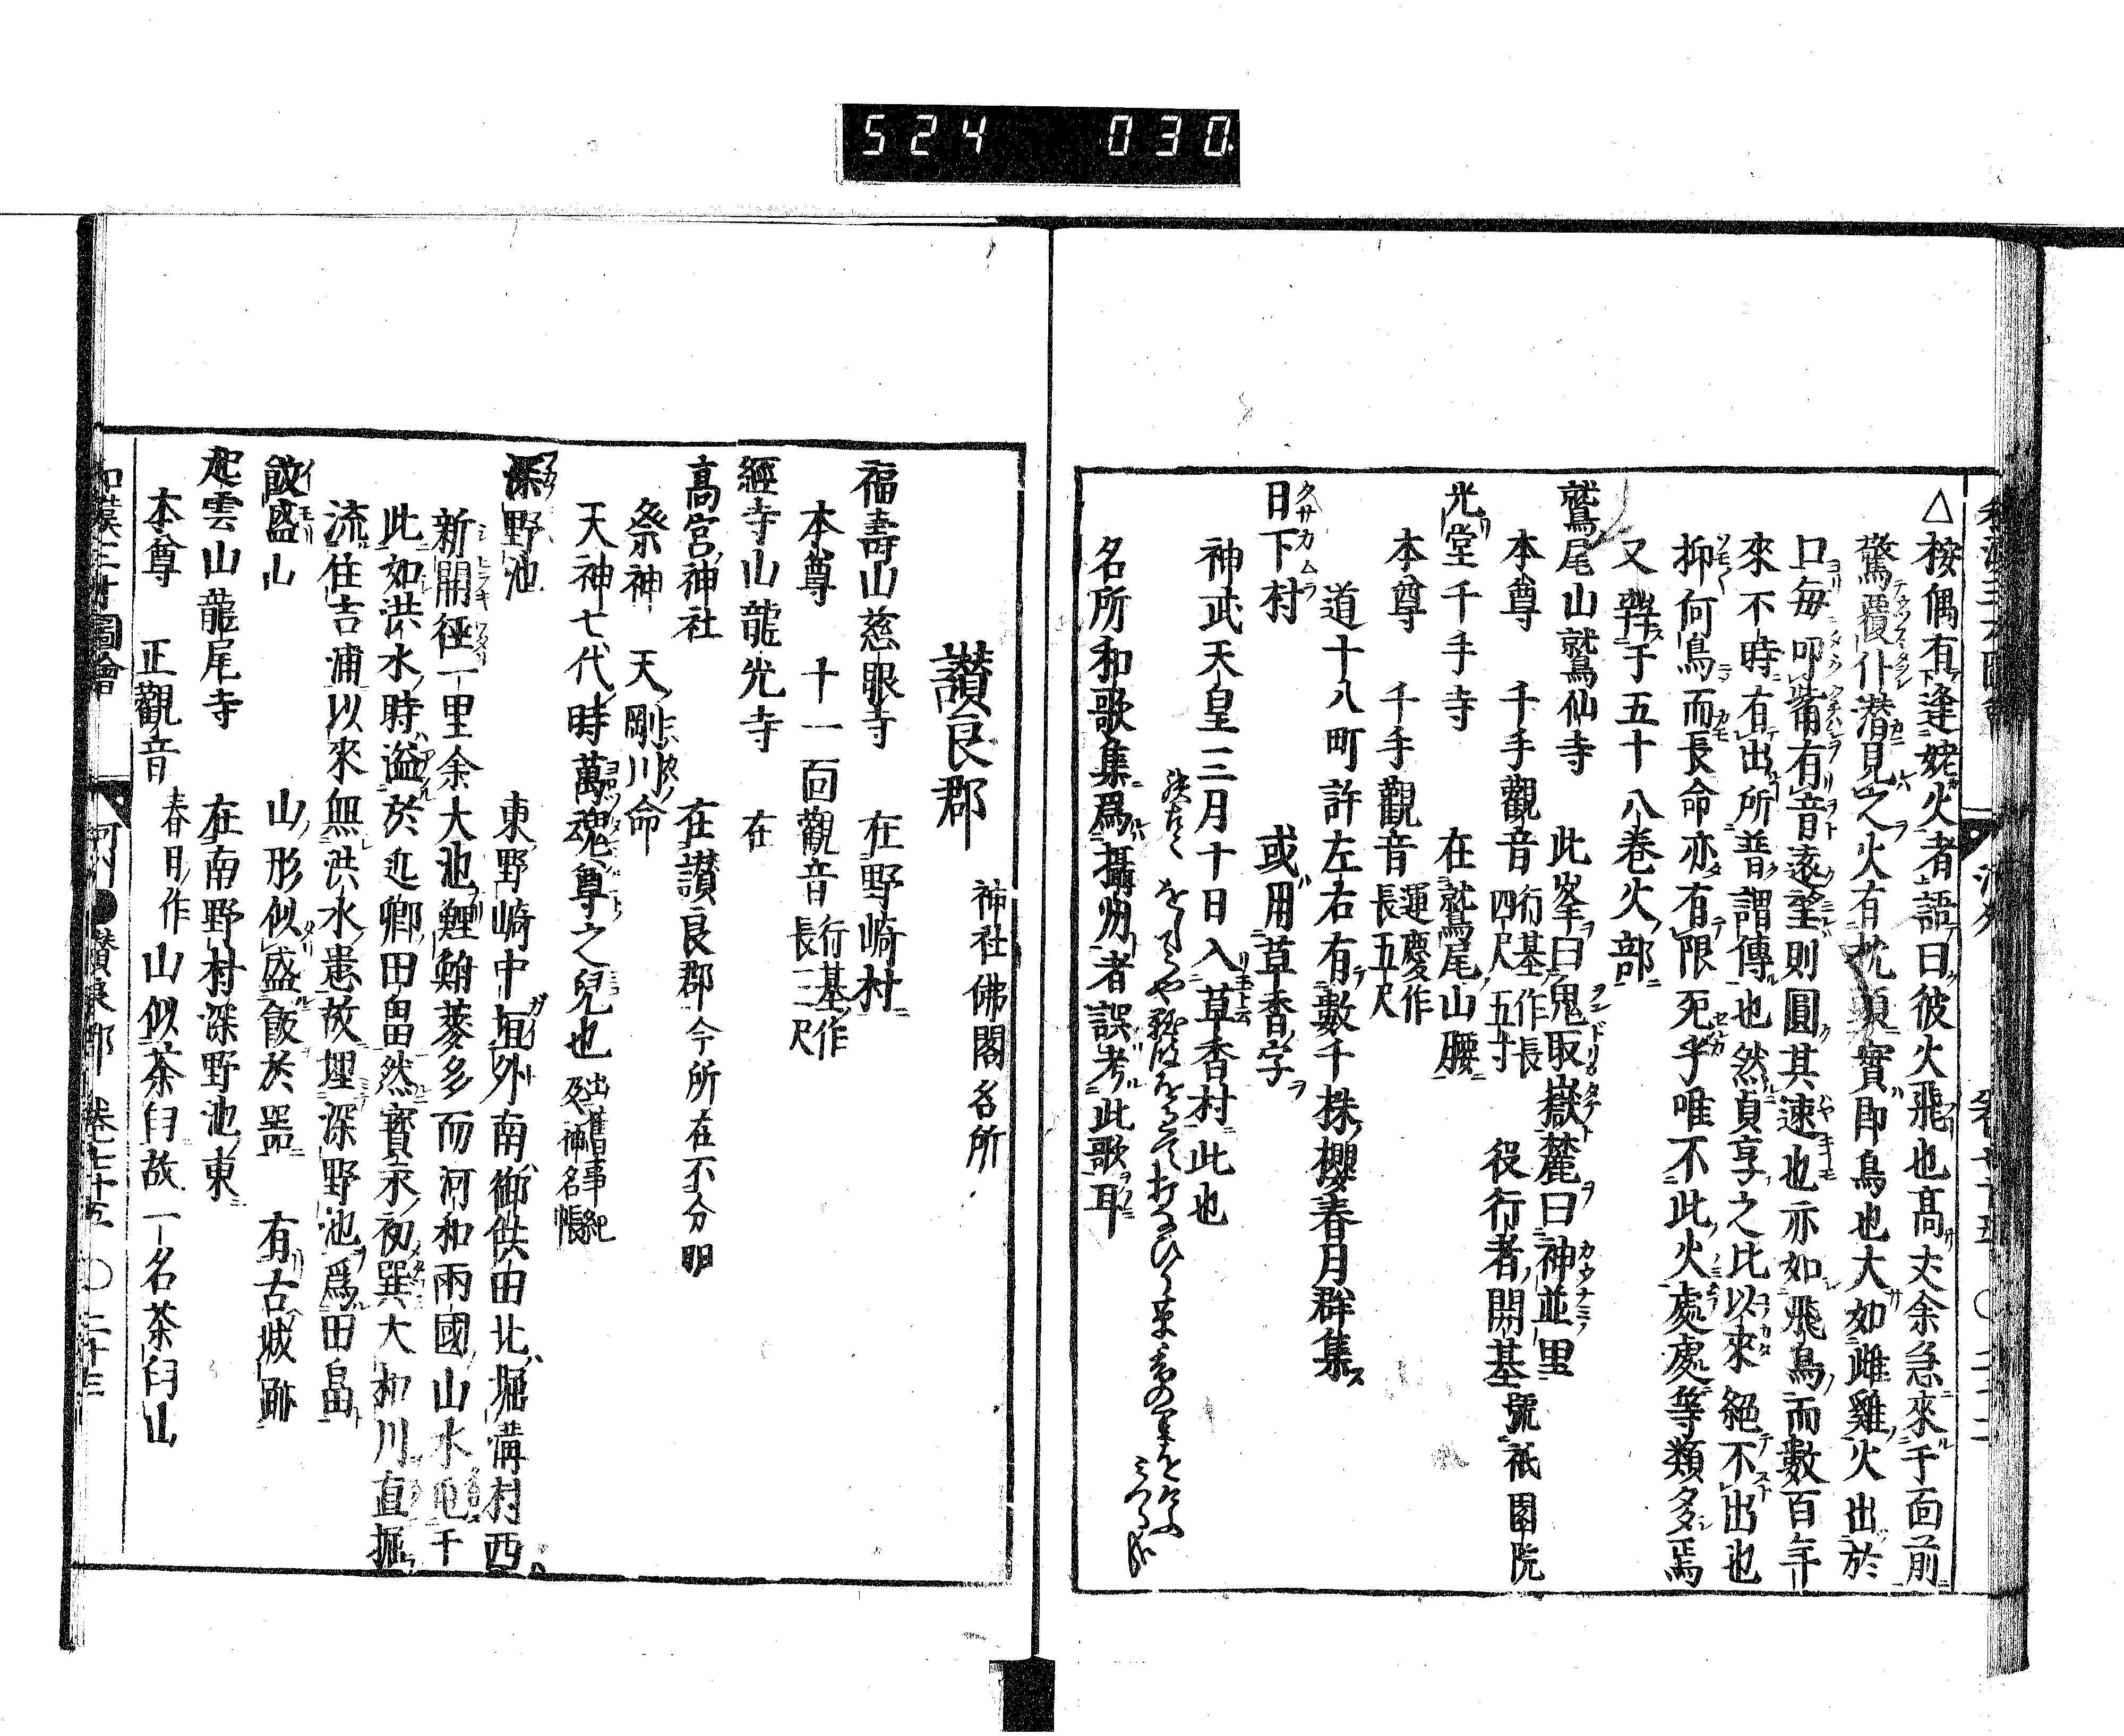 524 030
△按偶有逢姥火者語曰彼火飛也髙丈余急來于面前
驚覆仆潜見之火有枕頭實即鳥也大如雌雞火出於
口毎叩觜有音遠望則圓其速也亦如飛鳥而數百年
來不時有出所普謂傳也然貞享之比以來絕不出也
抑何鳥而長命亦有限死乎唯不此火處處等類多焉
又辨于五十八卷火部
鷲尾山鷲仙寺 此峯曰鬼取嶽麓曰神並里
本尊 千手觀音 行基作長四尺五寸 役行者開基 號祇園院
光堂千手寺 在鷲尾山腰
本尊 千手觀音 運慶作長五尺
道十八町許左右有數千株櫻春月群集
日下村 或用草香字
神武天皇三月十日入草香村此也
名所和歌集爲攝州者誤考此歌耳
讃良郡 神社佛閣名所
福壽山慈眼寺 在野崎村
本尊 十一面觀音 行基作長三尺
經寺山龍光寺 在
髙宮神社 在讃良郡今所在不分明
祭神 天剛川命
天神七代時萬魂尊之兒也 出舊事紀及神名帳
深野池 東野崎中垣外南御供田北堀溝村西
新開徑一里余大池鯉鮒菱多而河和兩國山水千
此如洪水時溢於近鄕田畠然寳永初巽大和川直掘
流住吉浦以來無洪水患故埋深野池爲田畠
飯盛山 山形似盛飯於器 有古城跡
起雲山龍尾寺 在南野村深野池東
本尊 正觀音 春日作 山似茶臼故一名茶臼山
和漢三才圖會 河州●讃良郡 卷七十五 〇二十三